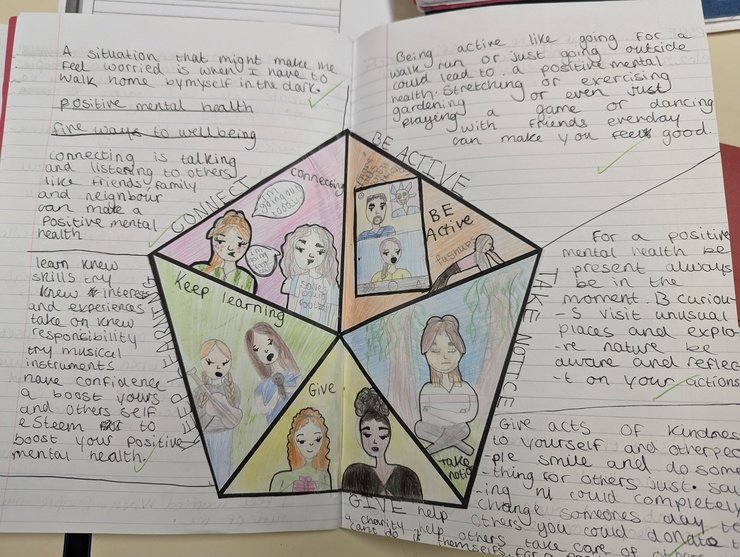 A situation that might make me
feel worried is when I have to
walk home bymyself in the dark.
positive mental health
five ways to wellbeing
connecting is talking
and listening to others
like friends, family
and neighbour
can make a
Positive mental
health
learn knew
skills try
knew interest
and experiens
take on knew
responsibility
try musical
instruments
have confidence
a boost yours
and others self
eSteem to
boost your positive
mental health.
Being active like going for a
walk run or just going outside
could lead to a positive mental
health. Stretching or exercising
gardening or even just
playing a game or dancing
with friends everyday
can make you feel good.
For a positive
mental health be
present always
be in the
moment. B curiou-
-s visit unusual
places and explo-
-re nature be
aware and reflec-
-t on your actions
Give acts of kindness
to yourself and otherpeo
ple smile and do some
-thing for others just say
-ing hi could completely
change someones day to
help others you could donate t
a charity help others take care of
cant do it themselfs for
CONNECT
connecting
BE ACTIVE
BE
Active
Pushups
KEEP LEARNING
Keep learning
TAKE NOTICE
take
notic
GIVE
Give